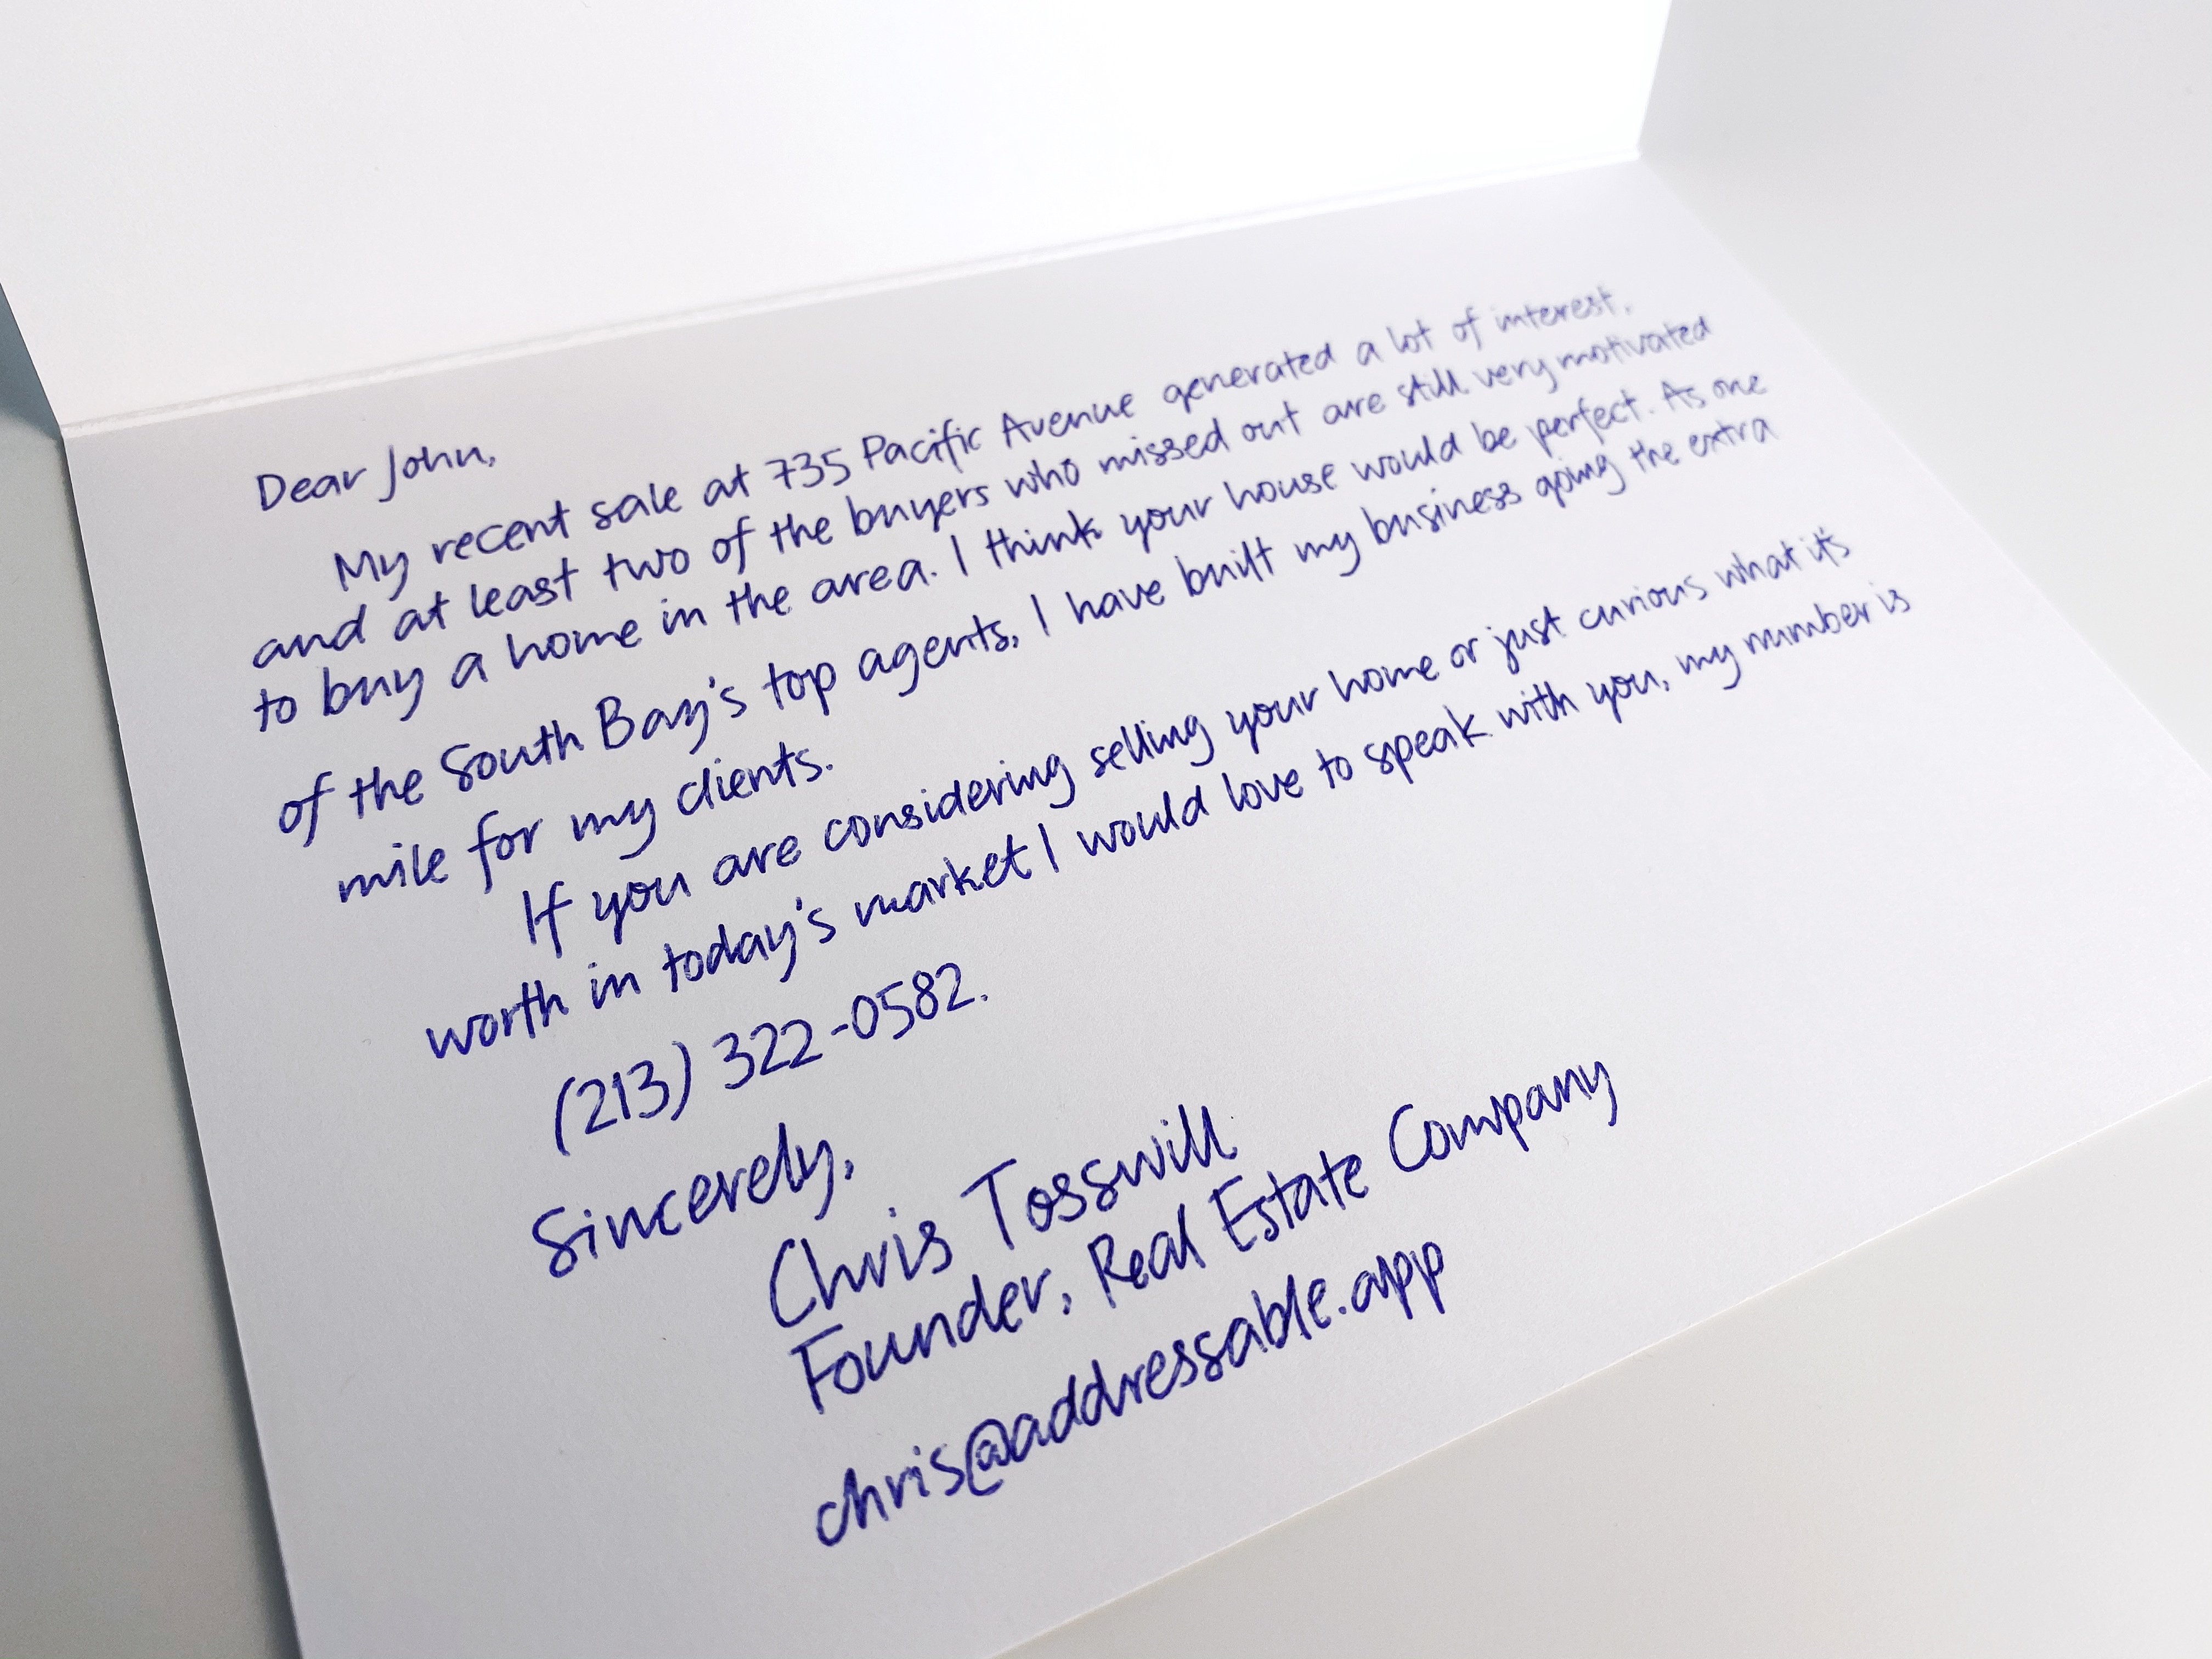 Dear John,
My recent sale at 735 Pacific Avenue generated a lot of interest,
and at least two of the buyers who missed out are still very motivated
to buy a home in the area. I think your house would be perfect. As one
of the South Bay's top agents, I have built my business going the extra
mile for my clients.
If you are considering selling your home or just curious what it's
worth in today's market I would love to speak with you, my number is
(213) 322-0582.
Sincerely,
Chris Tosswill
Founder, Real Estate Company
chris@addressable.app